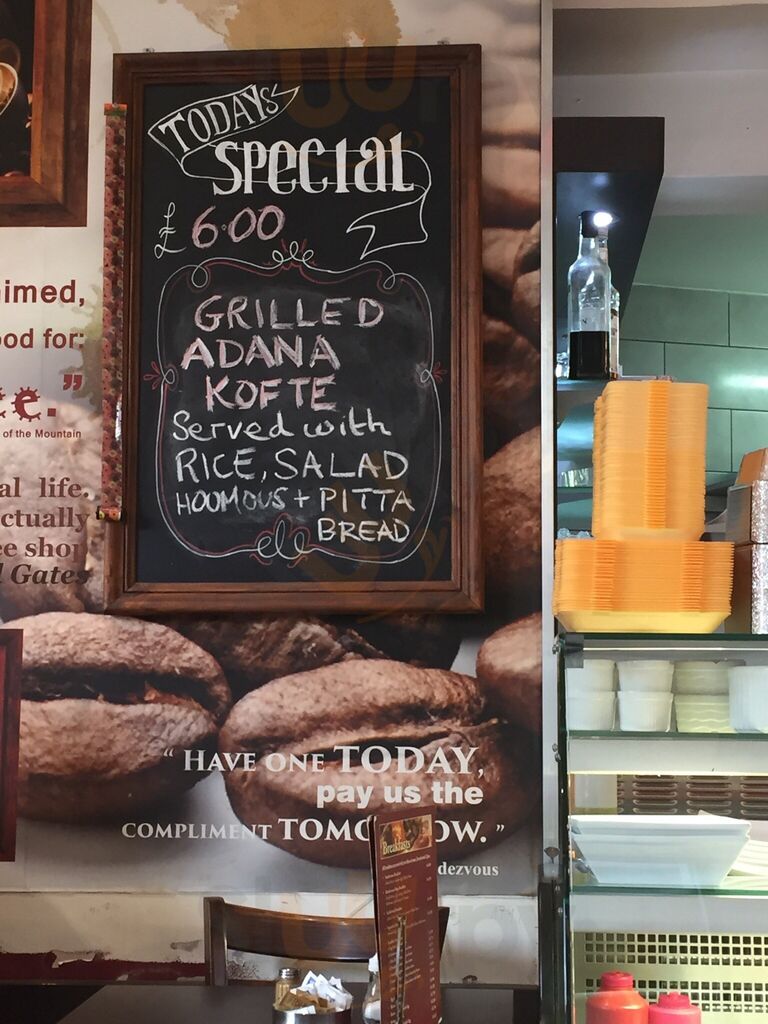 TODAYS
SPECIAL
£6.00
GRILLED
ADANA
KOFTE
Served with
RICE, SALAD
HOOMOUS + PITTA
BREAD
imed,
ood for:
e."
of the Mountain
al life.
ctually
ee shop
l Gates
"HAVE ONE TODAY,
pay us the
COMPLIMENT TOMO OW."
dezvous
Breakfasts